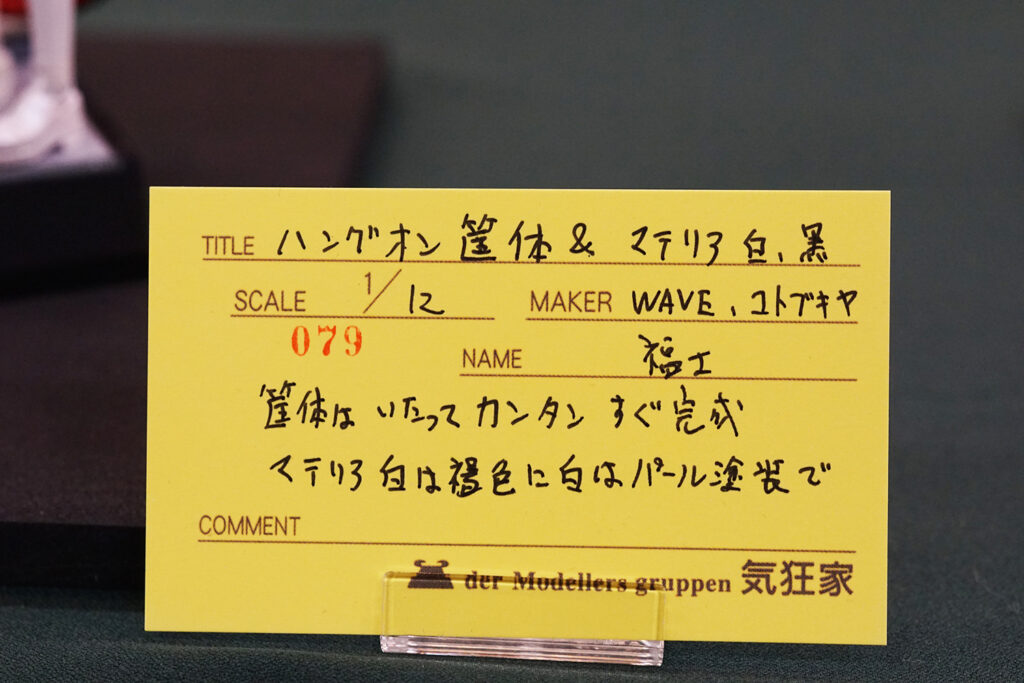 TITLE ハングオン 筐体 & マテリア 白、黒
SCALE 1/12 MAKER WAVE、コトブキヤ
079
NAME 福士
筐体は いたって カンタン すぐ 完成
マテリア 白は褐色に白はパール塗装で
COMMENT
der Modellers gruppen 気狂家